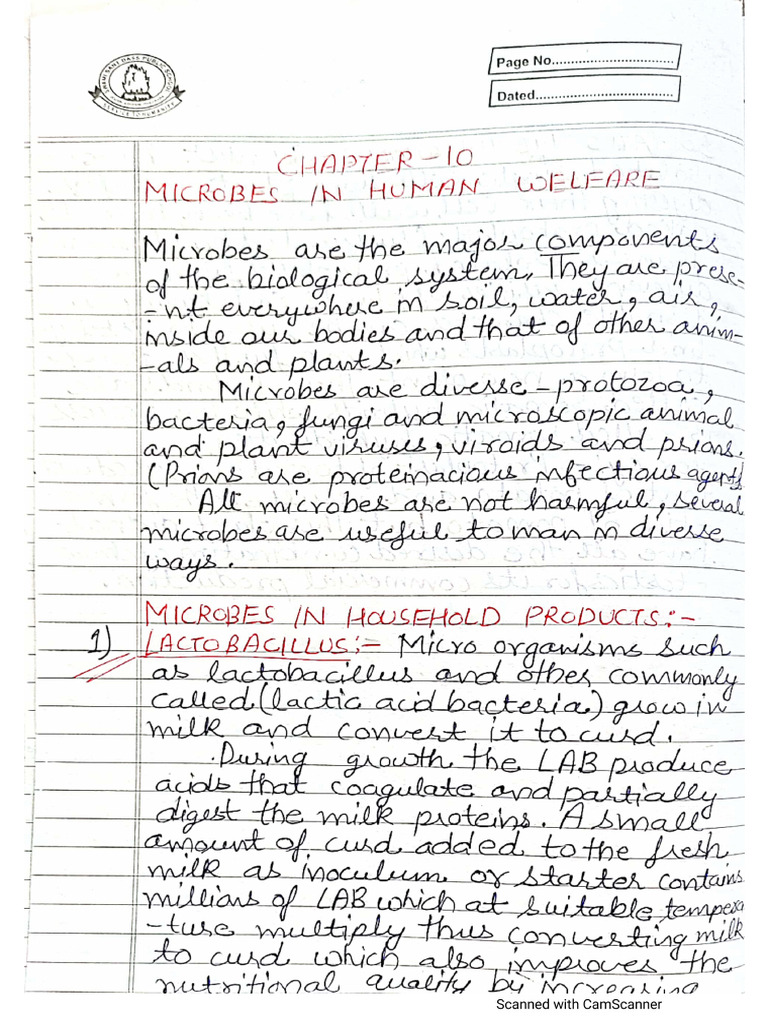 SHAHI SANT DASS PUBLIC SCHOOL
SERVICE TO HUMANITY
Page No.................................
Dated....................................
CHAPTER-10
MICROBES IN HUMAN WELFARE
Microbes are the major components
of the biological system. They are prese-
-nt everywhere in soil, water, air,
inside our bodies and that of other anim-
-als and plants.
Microbes are diverse - protozoa,
bacteria, fungi and microscopic animal
and plant viruses, viroids and prions.
(Prions are proteinacious infectious agent)
All microbes are not harmful, several
microbes are useful to man in diverse
ways.
MICROBES IN HOUSEHOLD PRODUCTS:-
1) LACTOBACILLUS:- Micro organisms such
as lactobacillus and other commonly
called (lactic acid bacteria) grow in
milk and convert it to curd.
During growth the LAB produce
acids that coagulate and partially
digest the milk proteins. A small
amount of curd added to the fresh
milk as inoculum or starter contains
millions of LAB which at suitable tempera
-ture multiply thus converting milk
to curd which also improves the
nutritional quality by increasing
Scanned with CamScanner